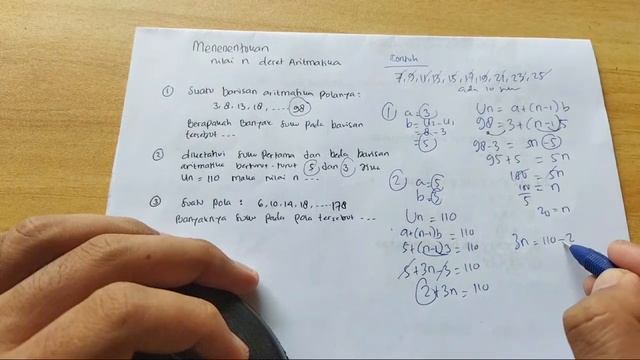 Menenentukan
nilai n deret Aritmatika
① Suatu barisan aritmatika polanya :
3, 8, 13, 18, ...... 98
Berapakah Banyak suku pada barisan
tersebut ...
② diketahui suku pertama dan beda barisan
aritmatika berturut-turut 5 dan 3 Jika
Un = 110 maka nilai n ...
③ Suatu Pola : 6, 10, 14, 18, .... 178
Banyaknya suku pada pola tersebut ...
Contoh
7, 9, 11, 13, 15, 17, 19, 21, 23, 25
ada 10 suku
① a = 3
b = U2 - U1
= 8 - 3
= 5
Un = a + (n-1) b
98 = 3 + (n-1) 5
98 - 3 = 5n - 5
95 + 5 = 5n
100 = 5n
100/5 = n
20 = n
② a = 5
b = 3
Un = 110
a + (n-1) b = 110
5 + (n-1) 3 = 110
5 + 3n - 3 = 110
2 + 3n = 110
3n = 110 - 2